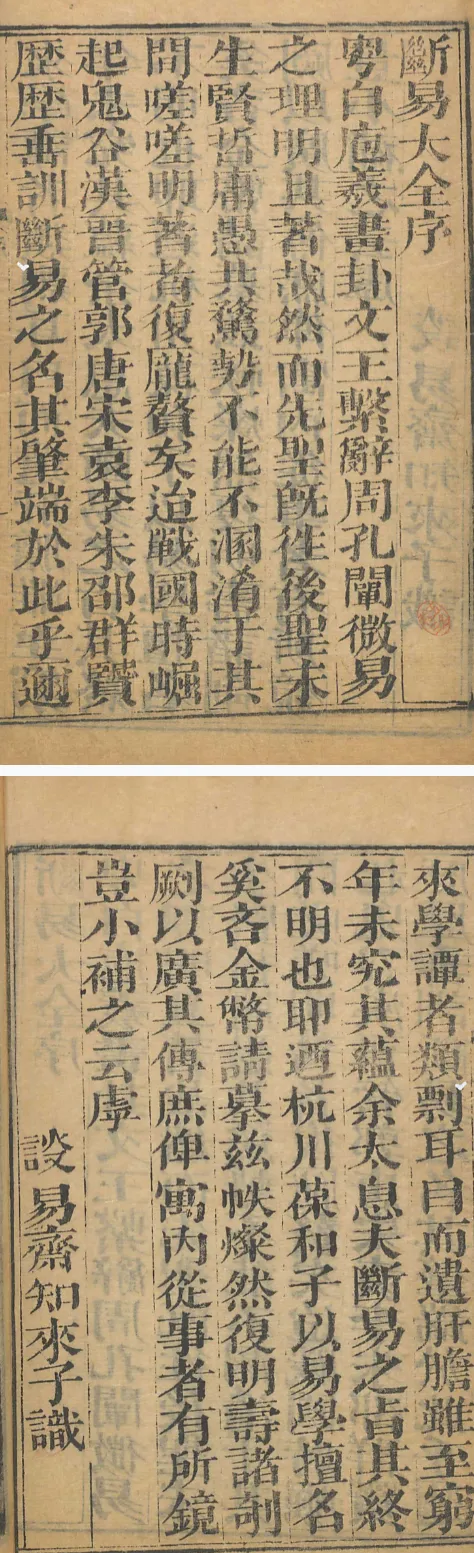 斷易大全序
粤自庖羲畫卦文王繫辭周孔闡微易
之理明且著哉然而先聖旣徃後聖未
生賢哲庸愚共騖勢不能不溷淆于其
間嗟嗟明著者復龎贅矣迨戰國時崛
起鬼谷漢晋管郭唐宋袁李朱邵群賢
歴歴垂訓斷易之名其肇端於此乎邇
來學譚者類剽耳目而遺肝膽雖至窮
年未究其蘊余太息夫斷易之旨其終
不明也耶迺杭川葆和子以易學擅名
奚吝金幣請摹兹帙燦然復明壽諸剞
劂以廣其傳庶俾寓内從事者有所鏡
豈小補之云虖
談易齋知來子識